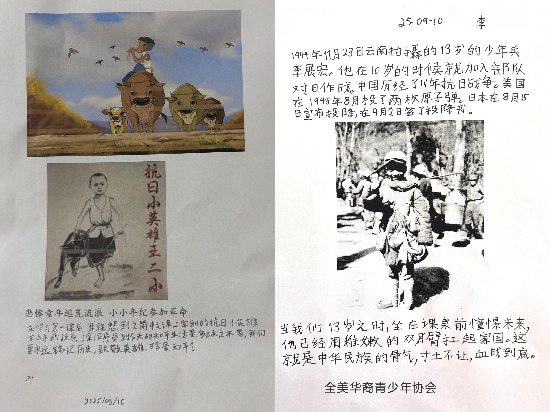 抗日小英雄王二小
悲惨童年逃荒流浪 小小年纪参加革命
我们
要永远铭记历史,致敬英雄,珍爱和平!
2025/09/10
25-09-10 李
1944年11月23日云南村子寨的13岁的少年兵
李展宏。他在10岁的时候就加入部队
对日作战。中国历经了14年抗日战争。美国
在1945年8月投了两枚原子弹。日本在8月15
日宣布投降,在9月2日签了投降书。
当我们13岁之时,坐在课桌前憧憬未来,
他已经用稚嫩的双肩臂扛起家国。这
就是中华民族的骨气,寸土不让,血战到底。
全美华裔青少年协会